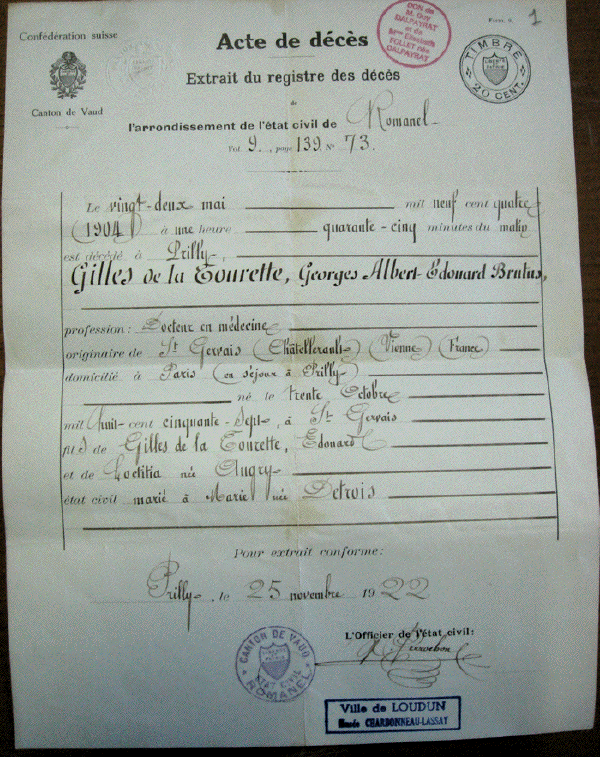 Form. 9.
1
Confédération suisse
Canton de Vaud
Acte de décès
DON de
M. Guy
DALPAYRAT
et de
Mme Elisabeth
FOLLET née
DALPAYRAT
TIMBRE
20 CENT.
Extrait du registre des décès
de
l'arrondissement de l'état civil de Romanel
Vol. 9., page 139. No 73.
Le vingt-deux mai mil neuf cent quatre
(1904) à une heure quarante-cinq minutes du matin
est décédé à Prilly,
Gilles de la Tourette, Georges Albert Edouard Brutus,
profession: Docteur en médecine
originaire de St Gervais (Châtellerault) (Vienne) (France)
domicilié à Paris (en séjour à Prilly)
né le trente Octobre
mil huit-cent cinquante-sept, à St Gervais
fils de Gilles de la Tourette, Edouard
et de Loetitia née Augry
état civil marié à Marie née Detrois
Pour extrait conforme:
Prilly, le 25 novembre 1922
L'Officier de l'état civil:
CANTON DE VAUD
LIBERTÉ ET PATRIE
ETAT CIVIL
ROMANEL
Ville de LOUDUN
Musée CHARBONNEAU-LASSAY